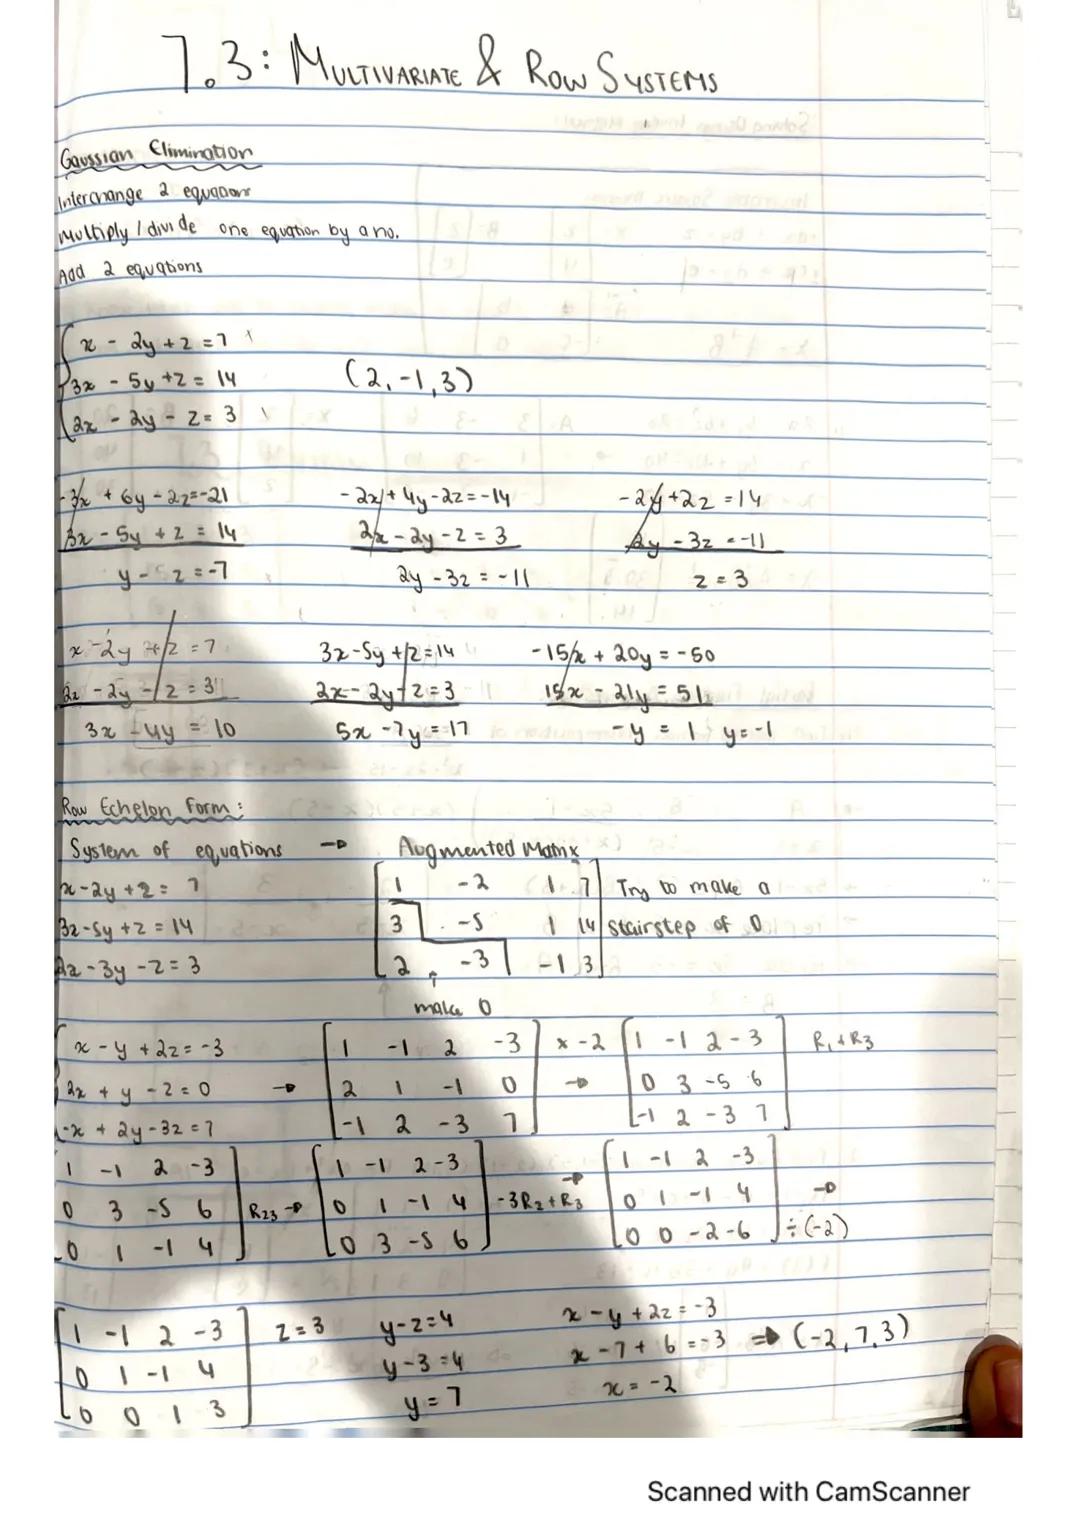 7.3: MULTIVARIATE & ROW SYSTEMS
Gaussian Elimination
Interchange 2 equations
Multiply / divide one equation by a no.
Add 2 equations
x - 2y + z = 7
3x - 5y + z = 14 (2, -1, 3)
2x - 2y - z = 3
-3x + 6y - 3z = -21 -2x + 4y - 2z = -14 -2y + 2z = 14
3x - 5y + z = 14 2x - 2y - z = 3 2y - 3z = -11
y - 2z = -7 2y - 3z = -11 z = 3
x - 2y + z = 7 3x - 5y + z = 14 -15x + 20y = -50
2x - 2y - z = 3 2x - 2y - z = 3 15x - 21y = 51
3x - 4y = 10 5x - 7y = 17 -y = 1 y = -1
Row Echelon Form:
System of equations → Augmented Matrix
x - 2y + z = 7 1 -2 1 7 Try to make a
3x - 5y + z = 14 3 -5 1 14 stairstep of 0
2x - 3y - z = 3 2 -3 -1 3
make 0
x - y + 2z = -3 1 -1 2 -3 x -2 1 -1 2 -3 R1 + R3
2x + y - z = 0 → 2 1 -1 0 → 0 3 -5 6
-x + 2y - 3z = 7 -1 2 -3 7 -1 2 -3 7
1 -1 2 -3 1 -1 2 -3 → 1 -1 2 -3
0 3 -5 6 R23 → 0 1 -1 4 -3R2 + R3 0 1 -1 4 →
0 1 -1 4 0 3 -5 6 0 0 -2 -6 ÷ (-2)
1 -1 2 -3 z = 3 y - z = 4 x - y + 2z = -3
0 1 -1 4 y - 3 = 4 x - 7 + 6 = -3 → (-2, 7, 3)
0 0 1 3 y = 7 x = -2
Scanned with CamScanner